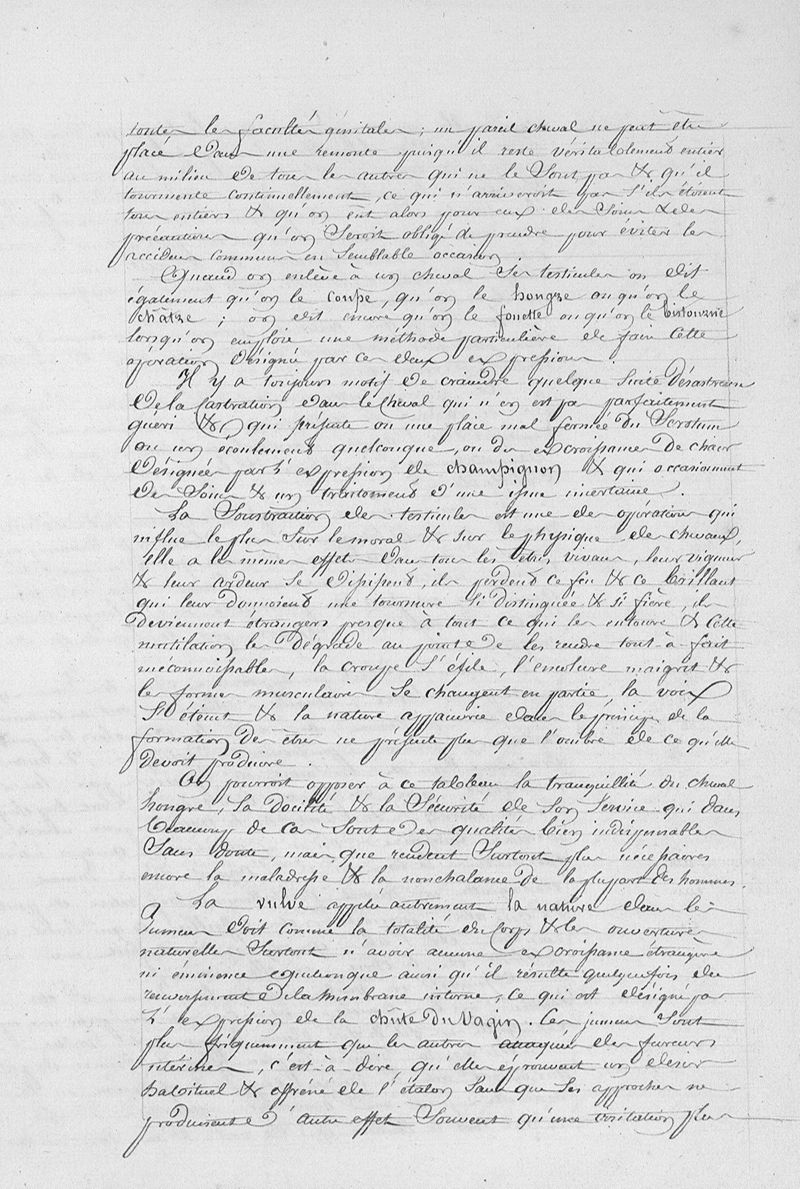 toutes les facultés génitales ; un pareil cheval ne peut être
placé dans une remonte puisqu'il reste véritablement entier
au milieu de tous les autres qui ne le sont pas & qu'il
tourmente continuellement, ce qui n'arriveroit pas s'ils étoient
tous entiers & qu'on eut alors pour eux des soins & des
précautions qu'on seroit obligé de prendre pour éviter les
accidens communs en semblable occasion.
Quand on enlève à un cheval ses testicules on dit
également qu'on le coupe, qu'on le hongre ou qu'on le
châtre ; on dit encore qu'on le fouette ou qu'on le bistourne
lorsqu'on emploie une méthode particulière de faire cette
opération désignée par ces deux expressions.
Il y a toujours motif de craindre quelque suite désastreuse
de la castration dans le cheval qui n'en est pas parfaitement
guéri & qui présente ou une plaie mal fermée du scrotum
ou un écoulement quelconque, ou des excroissances de chair
désignées par l'expression de champignon & qui occasionnent
des soins & un traitement d'une issue incertaine.
La soustraction des testicules est une des opérations qui
influe le plus sur le moral & sur le physique des chevaux,
elle a le même effet dans tous les êtres vivans, leur vigueur
& leur ardeur se dissipent, ils perdent ce feu & ce brillant
qui leur donnoient une tournure si distinguée & si fière, ils
deviennent étrangers presque à tout ce qui les entoure & cette
mutilation les dégrade au point de les rendre tout à fait
méconnoissables, la croupe s'éfile, l'encolure maigrit &
les formes musculaires se changent en partie, la voix
s'éteint & la nature appauvrie dans le principe de la
formation des êtres ne présente plus que l'ombre de ce qu'elle
devoit produire.
On pourroit opposer à ce tableau la tranquillité du cheval
hongre, sa docilité & la sécurité de son service qui dans
beaucoup de cas sont des qualités bien indispensables
sans doute, mais que rendent surtout plus nécessaires
encore la maladresse & la nonchalance de la plupart des hommes.
La vulve appelée autrement la nature dans les
jumens doit comme la totalité du corps & les ouvertures
naturelles surtout n'avoir aucune excroissance étrangère
ni éminence quelconque ainsi qu'il résulte quelquefois du
renversement de la membrane interne, ce qui est désigné par
l'expression de la chûte du Vagin. Ces jumens sont
plus fréquemment que les autres attaquées des fureurs
utérines, c'est à dire, qu'elles éprouvent un désir
habituel & effréné de l'étalon sans que ses approches ne
produisent d'autre effet souvent qu'une irritation plus